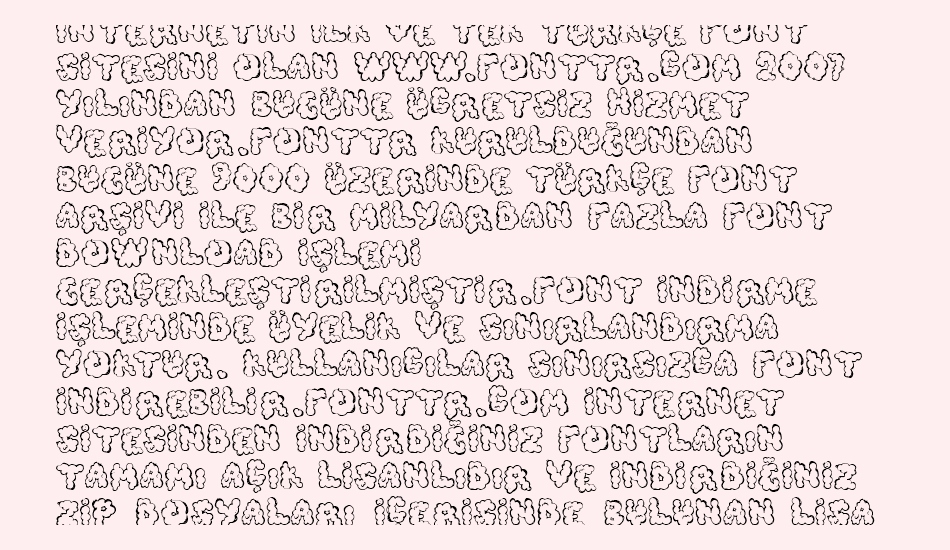 İNTERNETİN İLK VE TEK TÜRKÇE FONT
SİTESİNİ OLAN WWW.FONTTR.COM 2007
YILINDAN BUGÜNE ÜCRETSİZ HİZMET
VERİYOR.FONTTR KURULDUĞUNDAN
BUGÜNE 9000 ÜZERİNDE TÜRKÇE FONT
ARŞİVİ İLE BİR MİLYARDAN FAZLA FONT
DOWNLOAD İŞLEMİ
GERÇEKLEŞTİRİLMİŞTİR.FONT İNDİRME
İŞLEMİNDE ÜYELİK VE SINIRLANDIRMA
YOKTUR. KULLANICILAR SINIRSIZCA FONT
İNDİREBİLİR.FONTTR.COM İNTERNET
SİTESİNDEN İNDİRDİĞİNİZ FONTLARIN
TAMAMI AÇIK LİSANLIDIR VE İNDİRDİĞİNİZ
ZİP DOSYALARI İÇERİSİNDE BULUNAN LİSA